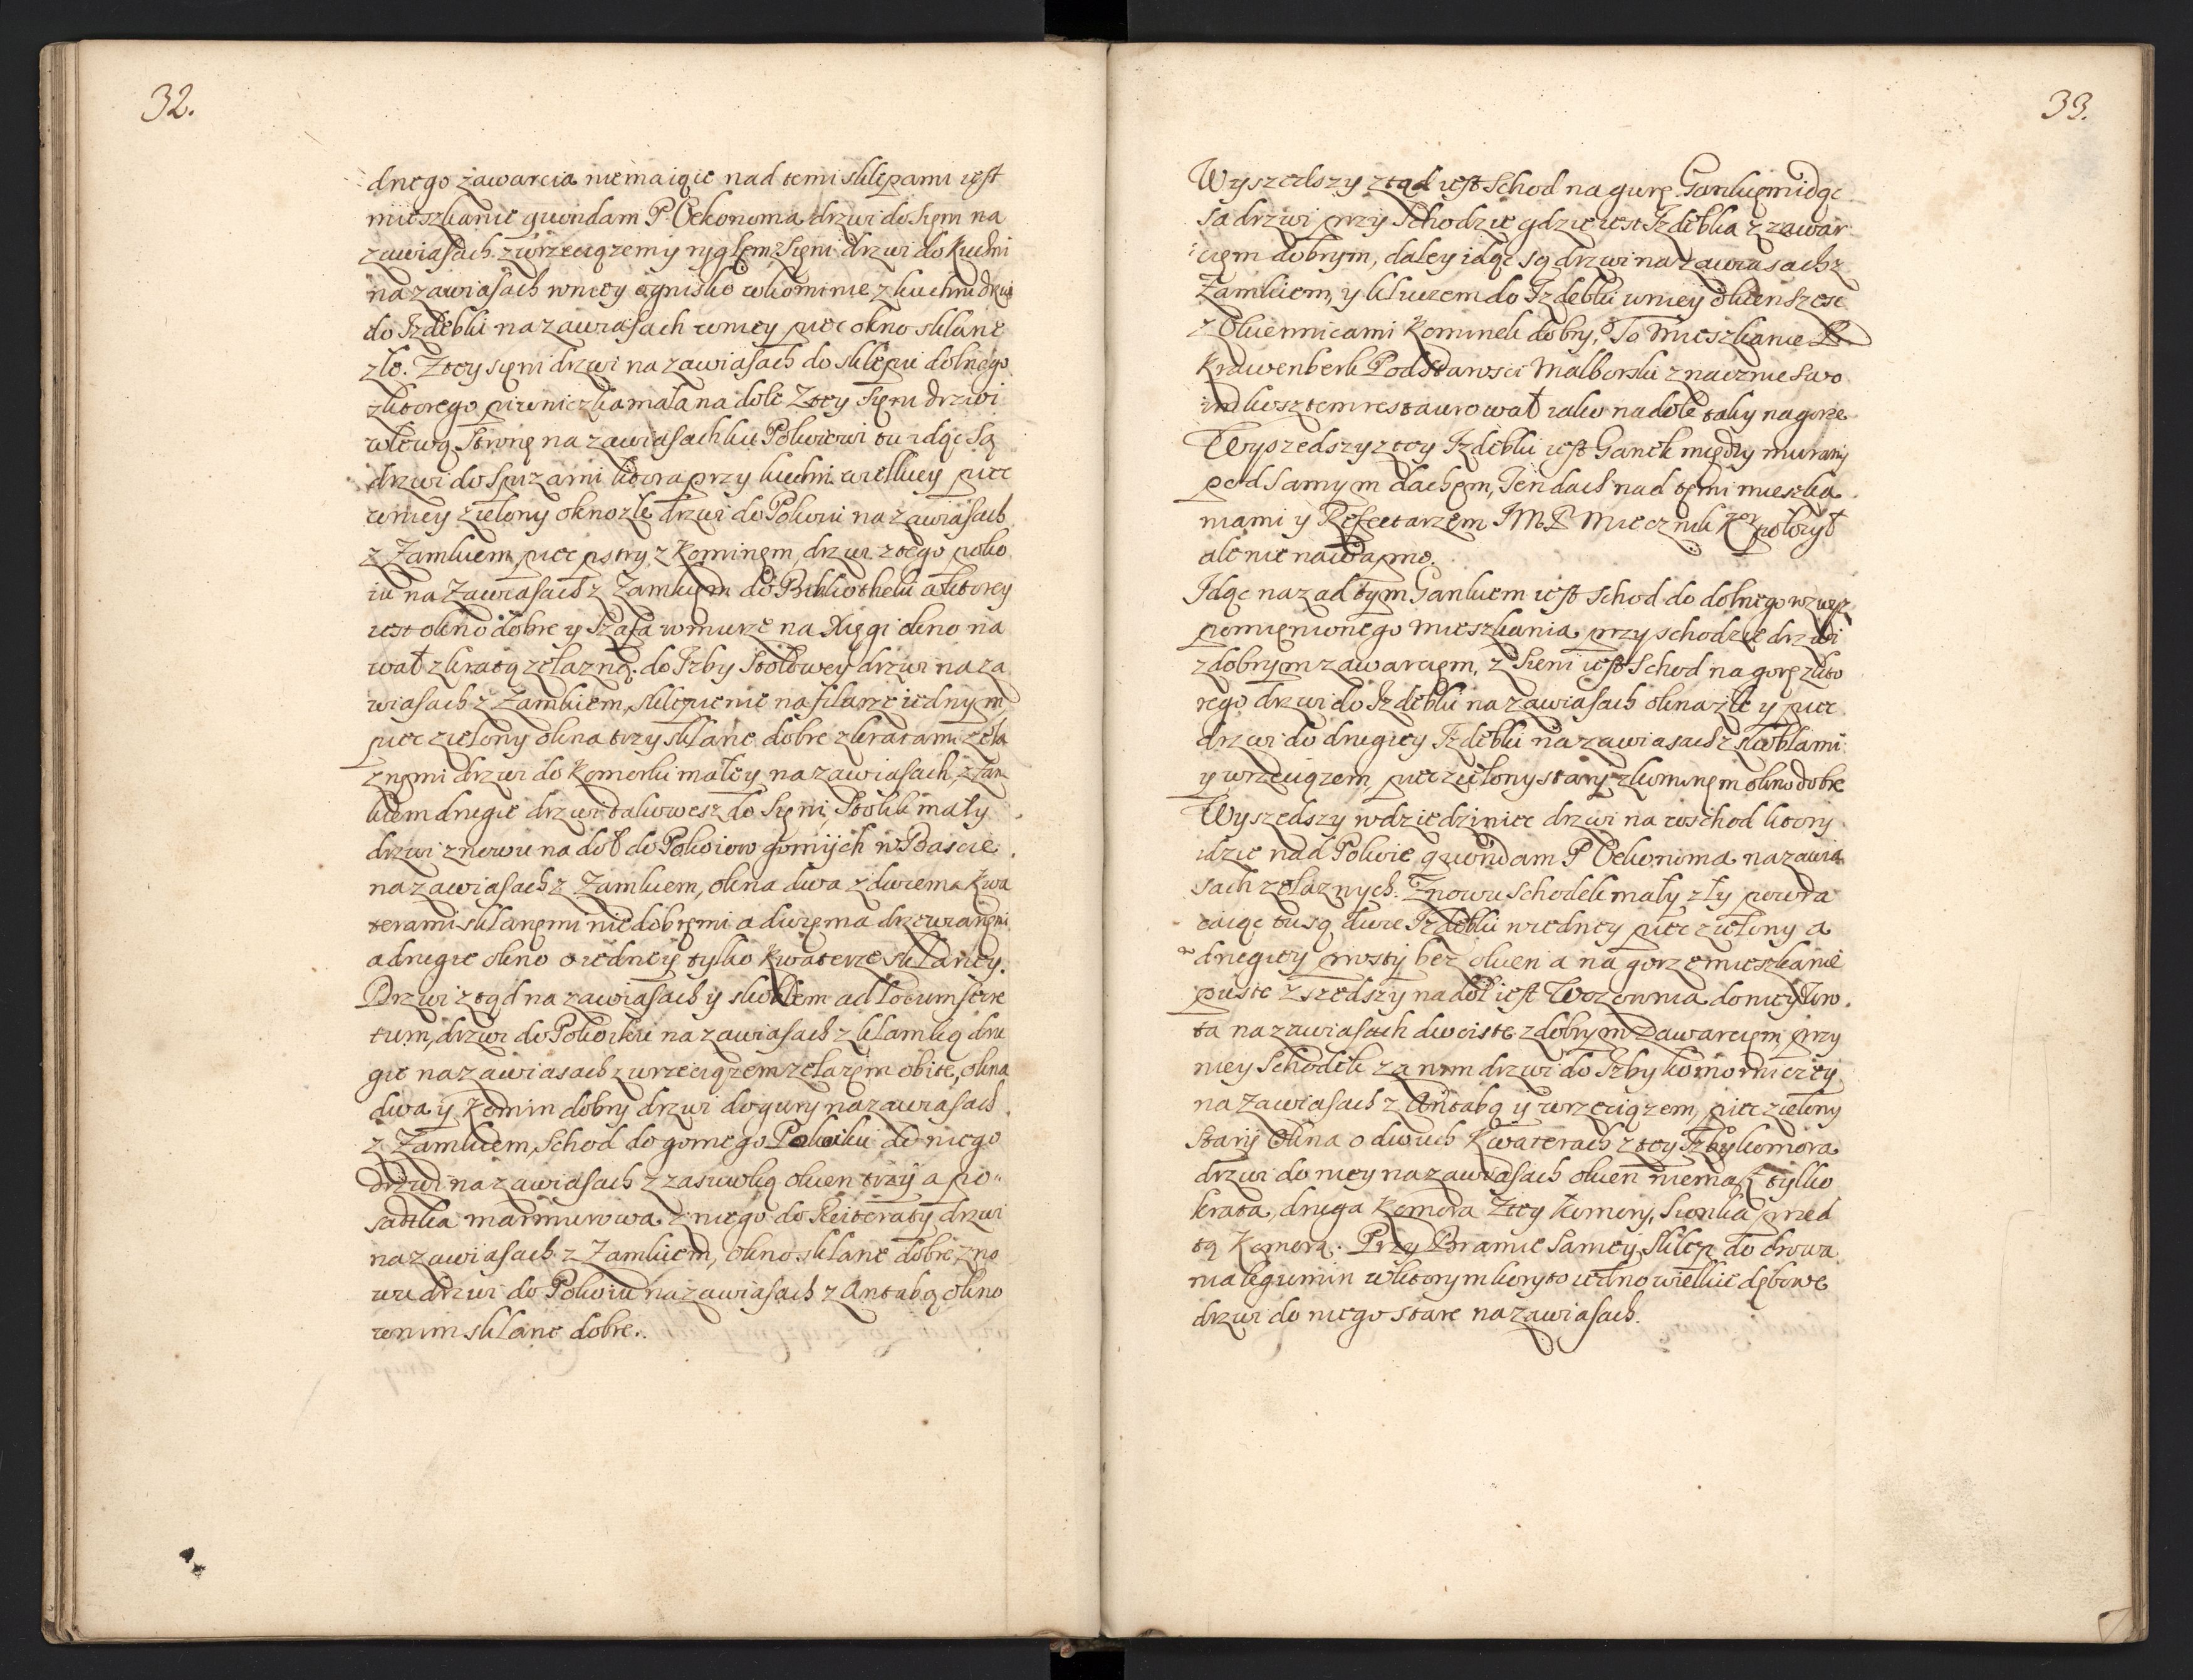 32.
dnego zawarcia niemaiące nad temi sklepami iest
mieszkanie quondam P. Oekonoma drzwi do Sięni na
zawiasach z wrzeciązem y ryglem z Sięni drzwi do Kuchni
na zawiasach wniey ognisko w kominie z kuchni drzwi
do Izdebki na zawiasach wniey piec okno sklane
złe. Z tey sięni drzwi na zawiasach do sklepu dolnego
z ktorego piwniczka mała na dole Z tey Sięni drzwi
w lewą Stronę na zawiasach ku Pokoiowi tu idąc Są
drzwi do Spizarni ktora przy kuchni wielkiey piec
wniey zielony okno złe drzwi do Pokoiu na zawiasach
z Zamkiem, piec pstry z Kominem, drzwi z tego poko
iu na Zawiasach z Zamkiem do Bibliotheki a w ktorey
iest okno dobre y Szafa w murze na Xięgi okno na
wał z kratą zelazną. do Izby Stołowey drzwi na za
wiasach z Zamkiem, sklepienie na filarze iednym,
piec zielony okna trzy sklane dobre z kratami zela
znemi drzwi do Komorki małey na zawiasach, z Zam
kiem drugie drzwi takowesz do Sięni, Stolik mały
drzwi znowu na doł do Pokoiow gornych w Baście
na zawiasach z Zamkiem, okna dwa z dwiema Kwa
terami sklanemi niedobremi a dwiema drzewianemi
a drugie okno o iedney tylko Kwaterze sklaney.
Drzwi z tąd na zawiasach y skoblem ad Locum secre
tum, drzwi do Pokoiku na zawiasach z klamką dru
gie na zawiasach z wrzeciązem zelazem obite, okna
dwa y Komin dobry drzwi do gury na zawiasach
z Zamkiem, Schod do gornego Pokoiku do niego
Drzwi na zawiasach z zasuwką okien trzy a po"
sadzka marmurowa z niego do Reiteraty drzwi
na zawiasach z Zamkiem, okno sklane dobre, zno
wu drzwi do Pokoiu na zawiasach z Antabą okno
w nim sklane dobre.
33.
Wyszedszy z tąd iest Schod na gurę Gankiem idąc
Są drzwi przy Schodzie gdzie iest Izdebka z zawar
ciem dobrym, daley idąc są drzwi na zawiasach z
Zamkiem, y kluczem do Izdebki wniey okien szesc
z Okiennicami Kominek dobry, To Mieszkanie P.
Krawenberk Podstarosci Malborski znacznie swo
im kosztem restaurował iako na dole tak y na gorze
Wyszedszy z tey Izdebki iest Ganek między murami
pod Samym dachem, Ten dach nad temi mieszka
niami y Refectarzem JMP Miecznik Kor. położył
ale nie nawapnie.
Idąc nazad tym Gankiem iest schod do dolnego wzwysz
pomienionego mieszkania przy schodzie drzwi
z dobrym zawarciem, z Sieni iest Schod na gorę z kto
rego drzwi do Izdebki na zawiasach okna złe y piec
drzwi do drugiey Izdebki na zawiasach z skoblami
y wrzeciązem, piec zielony stary z kominem okno dobre
Wyszedszy w dziedziniec drzwi na wschod ktory
idzie nad Pokoie quondam P Oekonoma na zawia
sach zelaznych. Znowu Schodek mały zły powra
caiąc tu są dwie Izdebki w iedney piec zielony a
w drugiey prosty bez okien a na gorze mieszkanie
puste Zszedszy na doł iest Wozownia do niey Wro
ta na zawiasach dwoiste z dobrym Zawarciem, przy
niey Schodek za nim drzwi do Izby komorniczey
na zawiasach z Antabą y wrzeciązem, piec zielony
Stary Okna o dwuch Kwaterach z tey Izby komora
drzwi do niey na zawiasach okien niemasz tylko
krata, druga Komora Z tey komory, Sionka przed
tą Komorą. Przy Bramie Samey Sklep do chowa
nia legumin w ktorym koryto iedno wielkie dębowe
drzwi do niego stare na zawiasach.